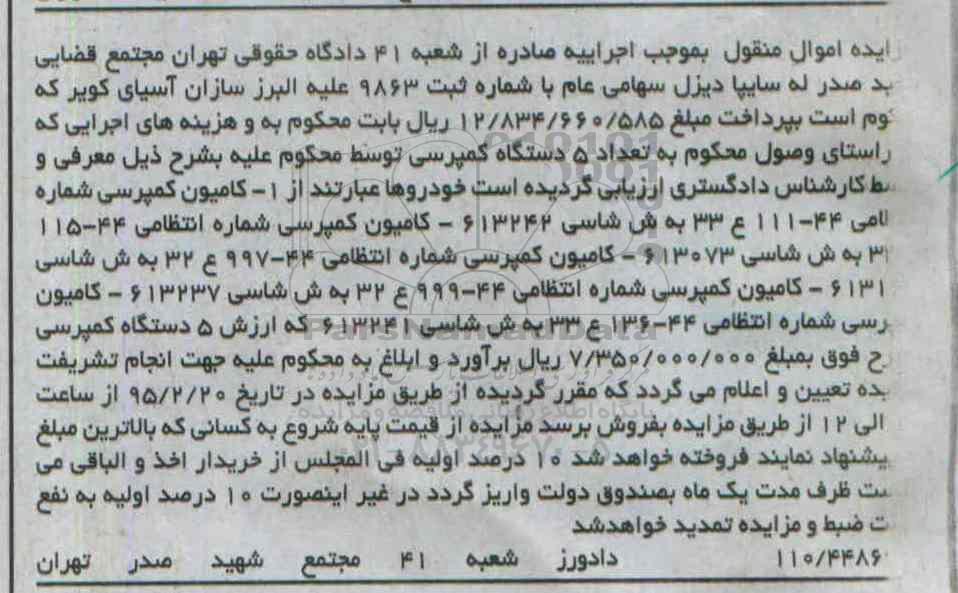 ایده اموال منقول بموجب اجراییه صادره از شعبه ۴۱ دادگاه حقوقی تهران مجتمع قضایی
ید صدر له سایپا دیزل سهامی عام با شماره ثبت ۹۸۶۳ علیه البرز سازان آسیای کویر که
کوم است بپرداخت مبلغ ۱۲/۸۳۴/۶۶۰/۵۸۵ ریال بابت محکوم به و هزینه های اجرایی که
راستای وصول محکوم به تعداد ۵ دستگاه کمپرسی توسط محکوم علیه بشرح ذیل معرفی و
سط کارشناس دادگستری ارزیابی گردیده است خودروها عبارتند از ۱- کامیون کمپرسی شماره
ظامی ۴۴-۱۱۱ ع ۳۳ به ش شاسی ۶۱۳۲۴۲ - کامیون کمپرسی شماره انتظامی ۴۴-۱۱۵
۳ به ش شاسی ۶۱۳۰۷۳ - کامیون کمپرسی شماره انتظامی ۴۴-۹۹۷ ع ۳۲ به ش شاسی
۶۱۳۱ - کامیون کمپرسی شماره انتظامی ۴۴-۹۹۹ ع ۳۲ به ش شاسی ۶۱۳۲۳۷ - کامیون
پرسی شماره انتظامی ۴۴-۱۳۶ ع ۳۳ به ش شاسی ۶۱۳۲۴۱ که ارزش ۵ دستگاه کمپرسی
رح فوق بمبلغ ۷/۳۵۰/۰۰۰/۰۰۰ ریال برآورد و ابلاغ به محکوم علیه جهت انجام تشریفت
یده تعیین و اعلام می گردد که مقرر گردیده از طریق مزایده در تاریخ ۹۵/۲/۲۰ از ساعت
الی ۱۲ از طریق مزایده بفروش برسد مزایده از قیمت پایه شروع به کسانی که بالاترین مبلغ
یشنهاد نمایند فروخته خواهد شد ۱۰ درصد اولیه فی المجلس از خریدار اخذ و الباقی می
ست ظرف مدت یک ماه بصندوق دولت واریز گردد در غیر اینصورت ۱۰ درصد اولیه به نفع
ت ضبط و مزایده تمدید خواهدشد
۱۱۰/۴۴۸۶ دادورز شعبه ۴۱ مجتمع شهید صدر تهران
ParsNamadData
پایگاه اطلاع رسانی مناقصه و مزایده